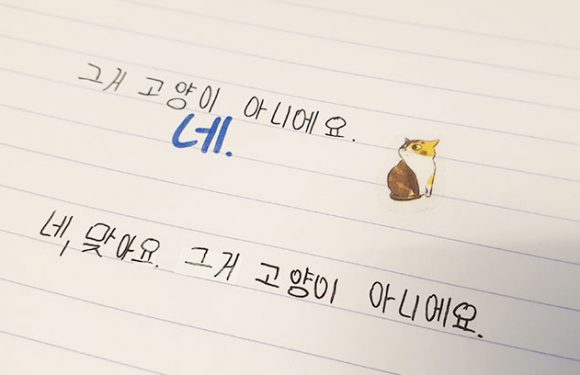 그거 고양이 아니에요.
네.
네, 맞아요. 그거 고양이 아니에요.